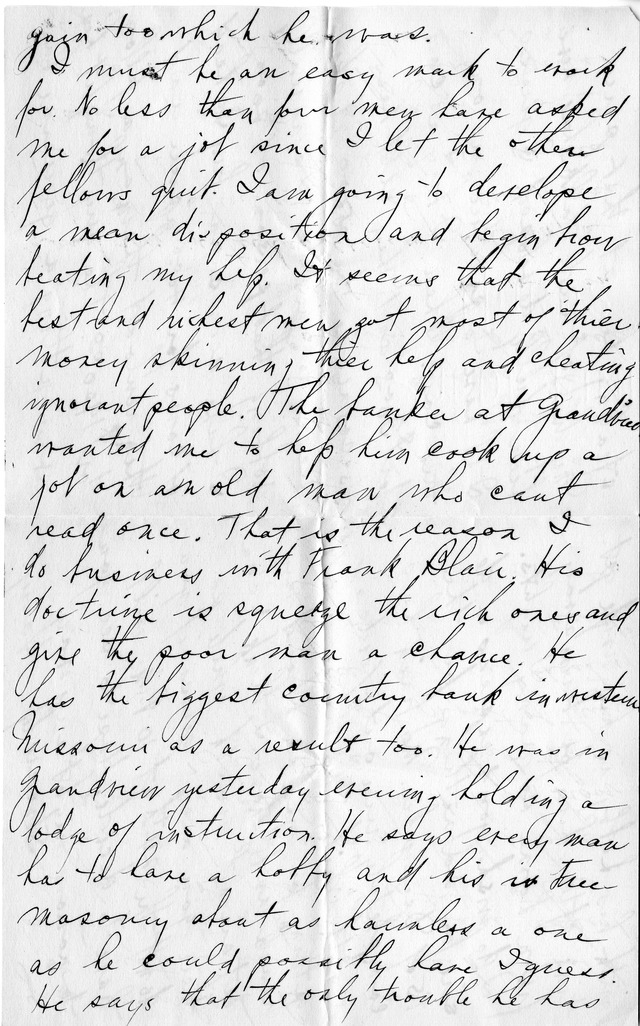 gain too which he was.
I must be an easy mark to work
for. No less than four men have asked
me for a job since I let the other
fellows quit. I am going to develope
a mean disposition and begin brow
beating my help. It seems that the
best and richest men got most of thier
money skinning thier help and cheating
ignorant people. The banker at Grandview
wanted me to help him cook up a
job on an old man who cant
read once. That is the reason I
do business with Frank Blair. His
doctrine is squeeze the rich ones and
give the poor man a chance. He
has the biggest country bank in western
Missouri as a result too. He was in
Grandview yesterday evening holding a
lodge of instruction. He says every man
has to have a hobby and his is Free
masonry about as harmless a one
as he could possibly have I guess.
He says that the only trouble he has